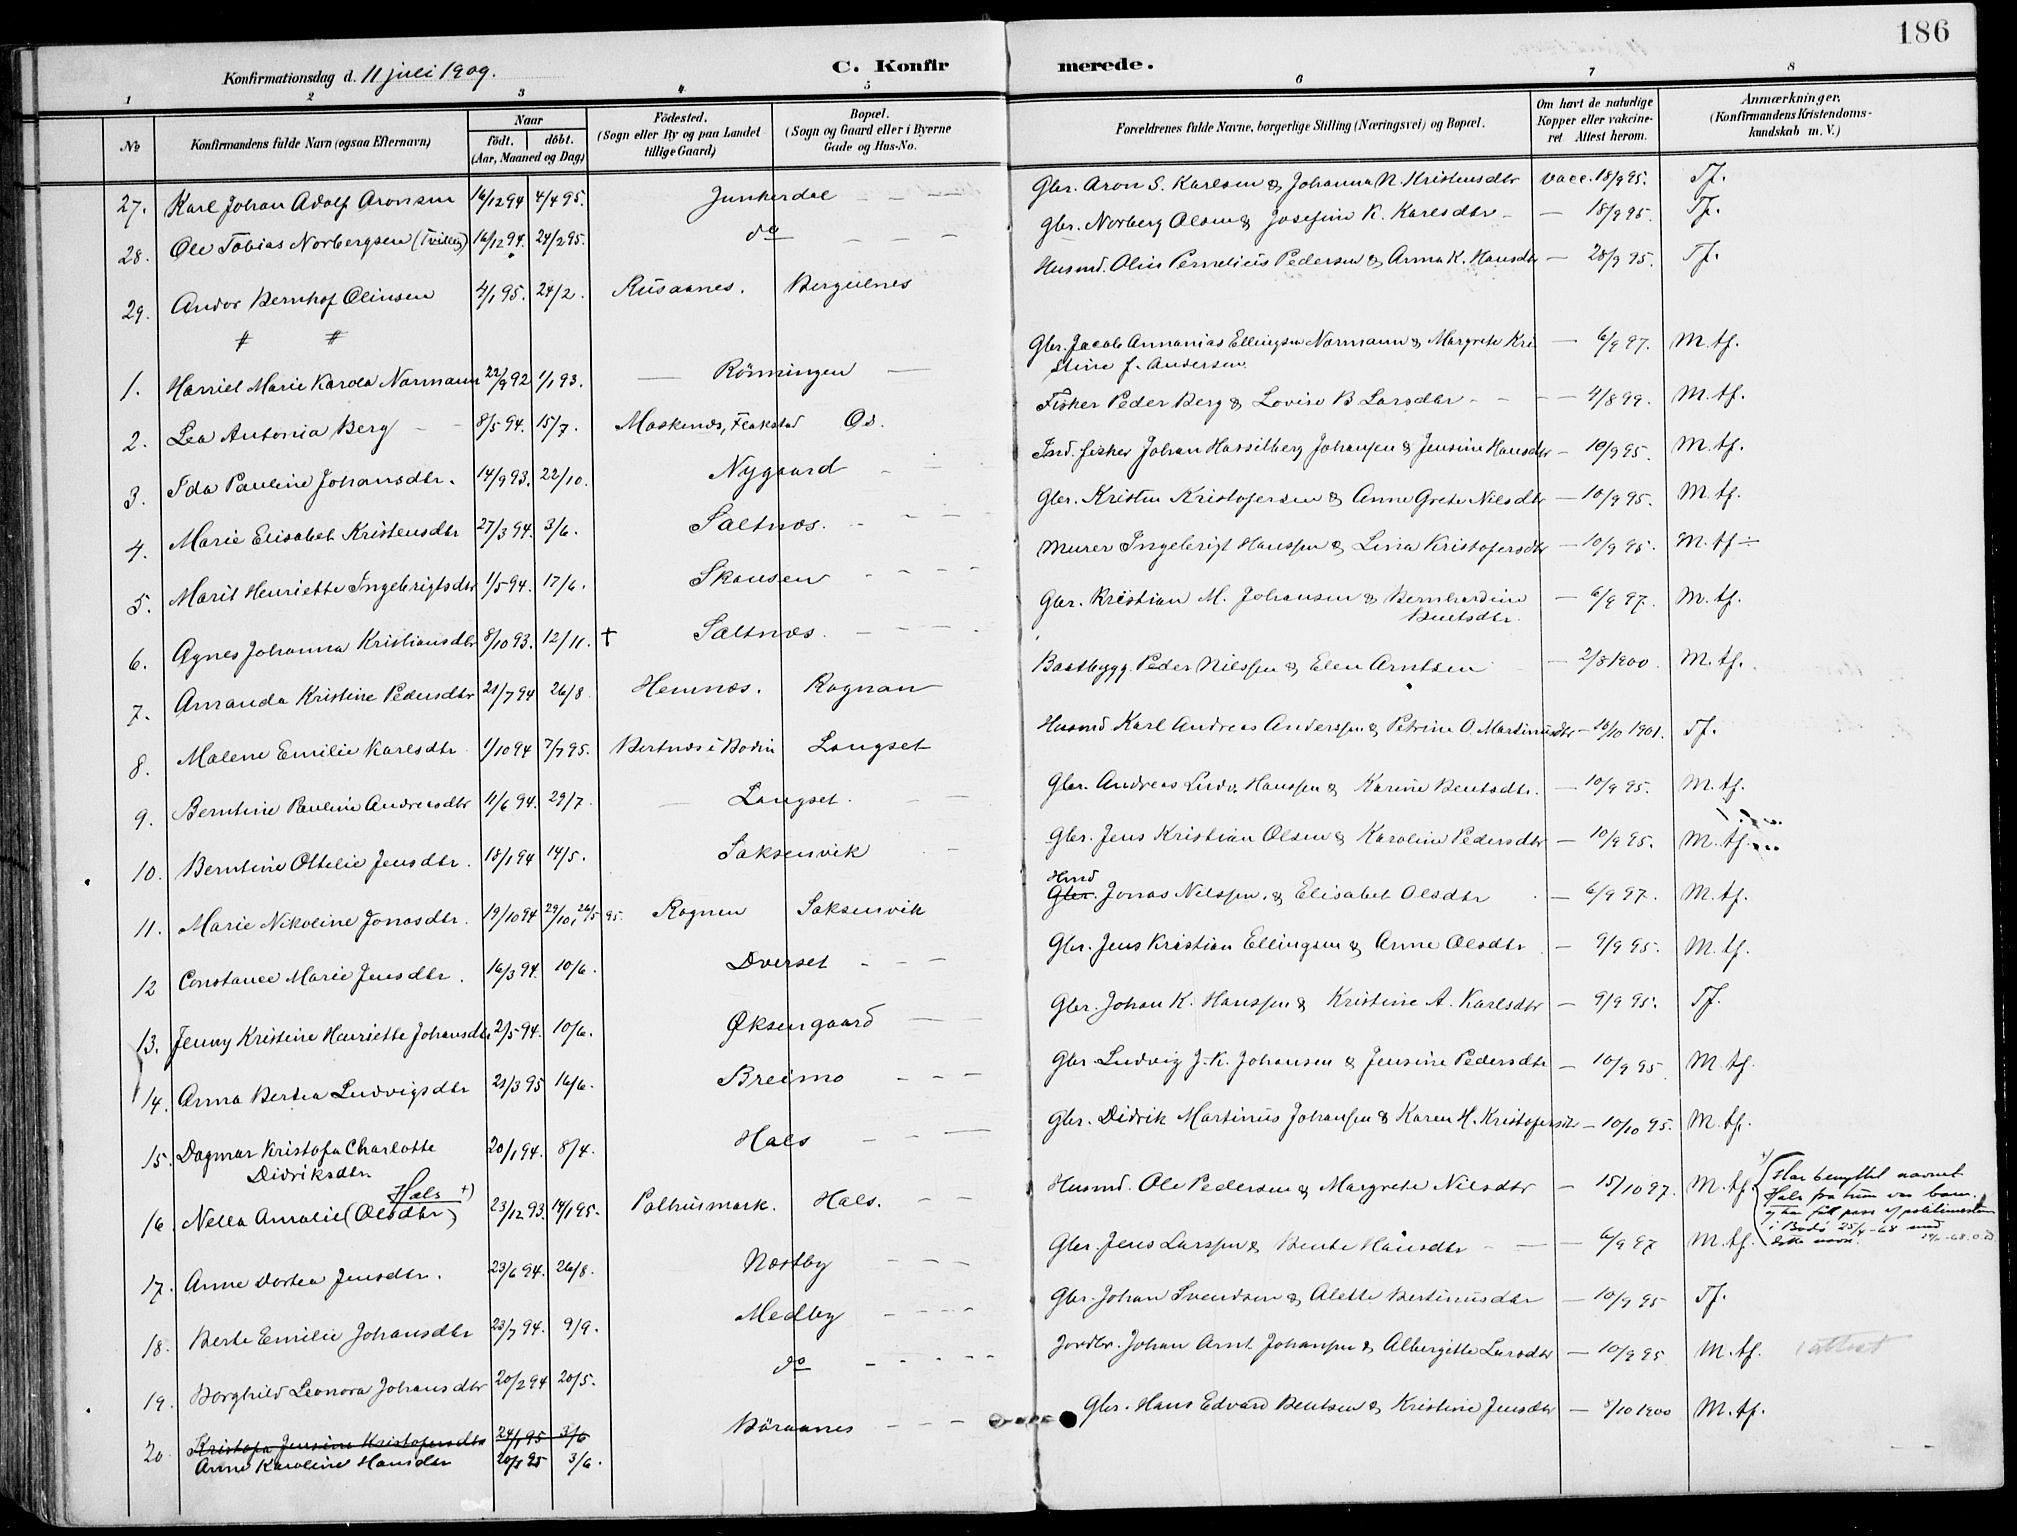 186
Konfirmationsdag d. 11 juli 1909.
C. Konfirmerede.
1 2 3 4 5 6 7 8
No
Konfirmandens fulde Navn (ogsaa Efternavn)
Naar
födt. döbt.
(Aar, Maaned og Dag)
Födested.
(Sogn eller By og paa Landet
tillige Gaard)
Bopæl.
(Sogn og Gaard eller i Byerne
Gade og Hus-No.
Forældrenes fulde Navne, borgerlige Stilling (Næringsvei) og Bopæl.
Om havt de naturlige
Kopper eller vakcine-
ret Attest herom.
Anmærkninger,
(Konfirmandens Kristendoms-
kundskab m. V.)
27. Karl Johan Adolf Aronsen 16/12 94 4/4 95. Junkerdal Gbr. Aron S. Karlsen & Johanna N. Kristensdtr vacc. 18/9 95. Tf.
28. Ole Tobias Norbergsen (Tvilling) 16/12 94. 24/2 95. do Gbr. Norberg Olsen & Josefine K. Karlsdtr — 18/9 95. Tf.
29. Andor Bernhof Olinsen 4/1 95. 24/2. Rusaanes. Bergulnes Husmd. Olin Pernelius Pedersen & Anna K. Hansdtr — 28/9 95. Tf.
# #
1. Harriet Marie Karola Normann 22/9 92 1/1 93. — Rönningen — Gbr. Jacob Annanias Ellingsen Normann & Margrete Kri — 6/9 97. M. tf.
stine f. Andersen
2. Lea Antonia Berg 8/5 94. 15/7. Moskenæs, Flakstad Os. Fisker Peder Berg & Lovise B Larsdtr — 4/8 99. M. tf.
3. Ida Pauline Johansdtr. 14/9 93. 22/10. Nygaard Ind. fisker Johan Hasselberg Johansen & Jensine Hansdtr — 10/9 95. M. tf.
4. Marie Elisabet Kristensdtr 27/3 94. 3/6. Saltnæs. Gbr. Kristen Kristofersen & Anne Grete Nilsdtr — 10/9 95. M. tf.
5. Marit Henriette Ingebrigtsdtr 1/5 94. 17/6. Skansen Murer Ingebrigt Hanssen & Lina Kristofersdtr — 10/9 95. M. tf ÷
6. Agnes Johanna Kristiansdtr 8/10 93. 12/11. † Saltnæs. Gbr. Kristian M. Johansen & Bernhardine — 6/9 97. M. tf.
Bentsdtr.
7. Amanda Kristine Pedersdtr 21/7 94 26/8 Hemnæs. Rognan Baatbygg. Peder Nilssen & Elen Arntsen — 2/8 1900. M. tf.
8. Malene Emilie Karlsdtr 1/10 94 7/7 95. Bertnæs i Bodin Langset Husmd Karl Andreas Anderssen & Petrine O. Martinusdtr — 16/10 1901. Tf.
9. Berntine Pauline Andreasdtr 11/6 94. 29/7. — Langset. Gbr. Andreas Ludv. Hanssen & Karine Bentsdtr. — 10/9 95. M. tf.
10. Berntine Ottelie Jensdtr. 18/1 94 14/5. Saksenvik Gbr. Jens Kristian Olsen & Karoline Pedersdtr — 10/9 95. M. tf.
11. Marie Nikoline Jonasdtr. 19/10 94 29/10, 26/5 95. Rognan Saksenvik Hmd Gbr. Jonas Nilssen, & Elisabet Olsdtr — 6/9 97. M. tf.
12 Constance Marie Jensdtr. 16/3 94. 10/6. Dverset Gbr. Jens Kristian Ellingsen & Anne Olsdtr — 9/9 95. M. tf.
13. Jenny Kristine Henriette Johansdtr 2/5 94. 10/6. Øksengaard Gbr. Johan K. Hanssen & Kristine A. Karlsdtr — 9/9 95. Tf.
14. Anna Bertea Ludvigsdtr 21/3 95 16/6. Breimo Gbr. Ludvig J. K. Johansen & Jensine Pedersdtr — 10/9 95 M. tf.
15. Dagmar Kristofa Charlotte 20/1 94. 8/4. Hals Gbr. Didrik Martinus Johansen & Karen H. Kristofersdtr — 10/10 95. M. tf.
Didriksdtr.
Hals +)
16. Nella Amalie (Olsdtr) 23/12 93. 14/1 95. Polhusmark. Hals. Husmd. Ole Pedersen & Margrete Nilsdtr — 15/10 97. M. tf.
+) Har benyttet navnet
Hals fra hun var barn.
og har fått pass af politimesteren
i Bodø 25/4-68 med
dette navn.
17. Anne Dortea Jensdtr. 23/6 94. 26/8. Næstby Gbr. Jens Larssen & Bente Hansdtr — 6/9 97 M. tf.
18. Berte Emilie Johansdtr 23/7 94. 9/9. Medby Gbr. Johan Svendsen & Alette Bertinusdtr — 10/9 95 Tf.
19. Borghild Leonora Johansdtr 20/2 94 20/5. do Jordbr. Johan Arnt Johansen & Albergitte Larsdtr — 10/9 95 M. tf. attest
20 Kristofa Jensine Kristofersdtr 24/1 95 3/6 Böraanes Gbr. Hans Edvard Bentsen & Kristine Jensdtr — 8/10 1900 M. tf.
Anne Karoline Hansdtr 20/1 95 3/6.